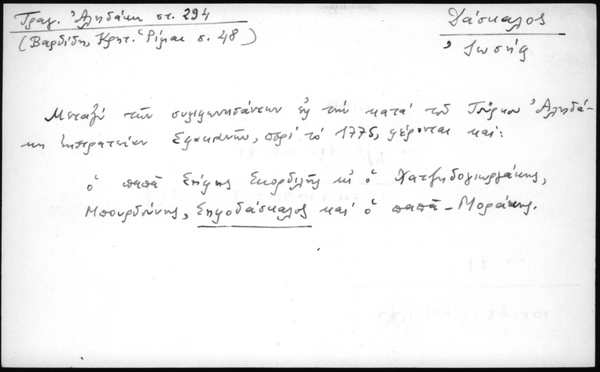 Τραγ. Ἀληδάκη στ. 294
(Βαρδίδη, Κρητ. Ρίμαι σ. 48)
Δάσκαλος
Ἰωσήφ
Μεταξύ τῶν συμφωνησάντων εἰς τήν κατά τοῦ Τούρκου Ἀληδά-
κη ἐκστρατείαν Σφακιανῶν, περί τό 1775, φέρονται καί:
ὁ παπᾶ Σήφης Σκορδίλης κι ὁ Χατζηδογιωργάκης,
Μπουρδούνης, Σηφοδάσκαλος καί ὁ παπᾶ-Μοράκης.